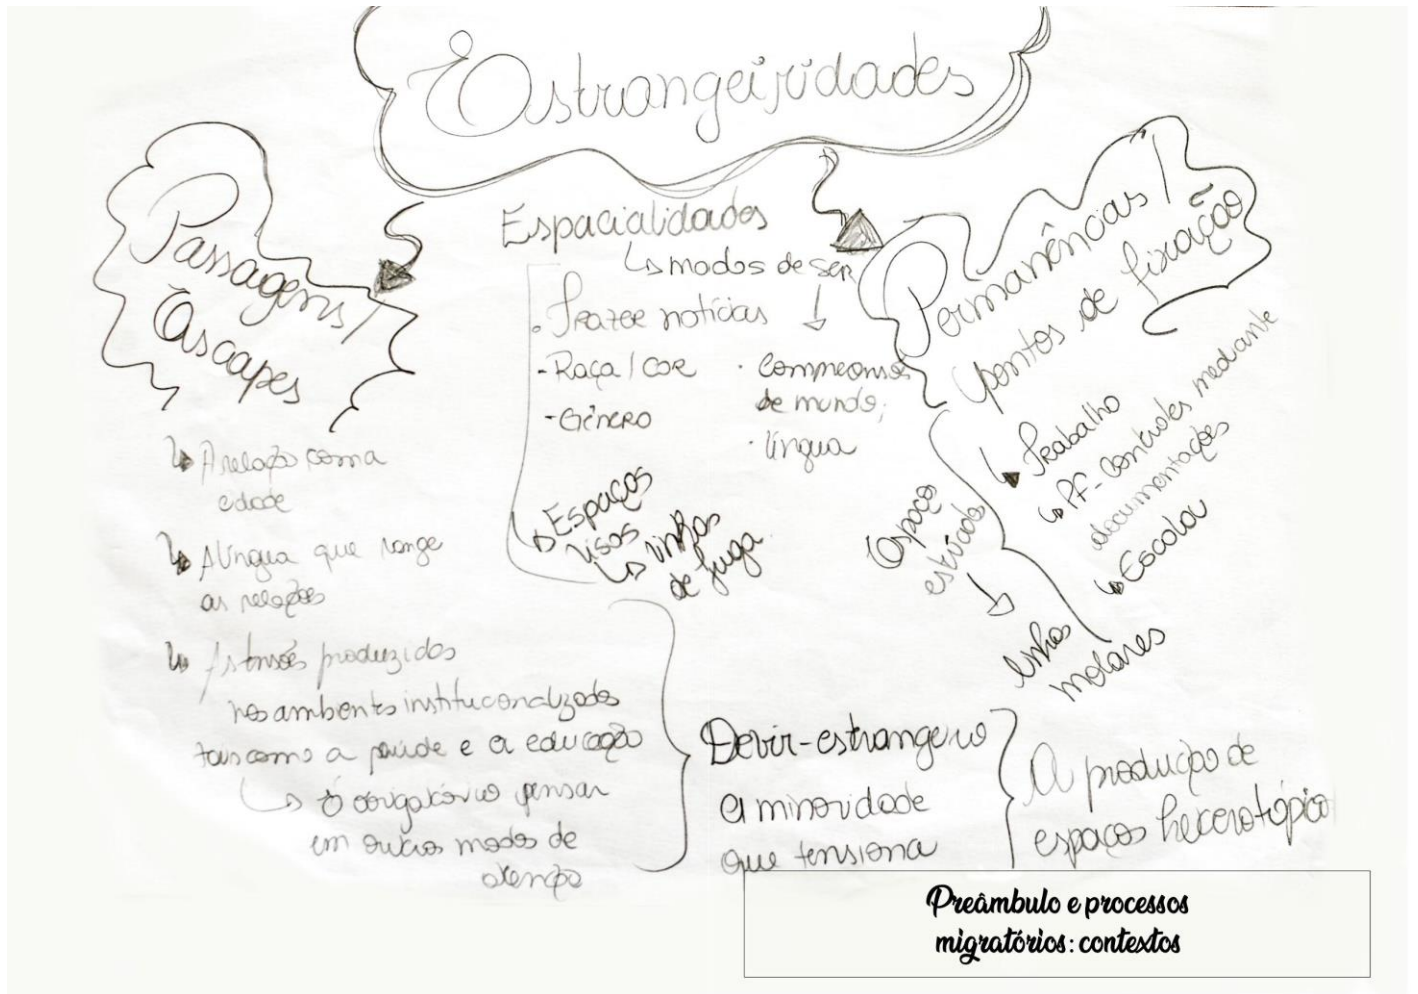 Estrangeiridades
Passagens/
Escapes
↳ A relação com a
cidade
↳ A língua que range
as relações
↳ As tensões produzidas
nos ambientes institucionalizados
tais como a saúde e a educação
↳ É obrigatório pensar
em outros modos de
atenção
Espacialidades
↳ modos de ser
. Trazer notícias
- Raça / COR
- Gênero
· Compreensões
de mundo;
· língua
↳ Espaços
lisos
↳ linhas
de fuga
Permanências/
pontos de fixação
Trabalho
↳ PF - Controles mediante
documentações
↳ Escola
Espaço
estriado
linhas
molares
Devir-estrangeiro
A minoridade
que tensiona
A produção de
espaços heterotópico
Preâmbulo e processos
migratórios: contextos